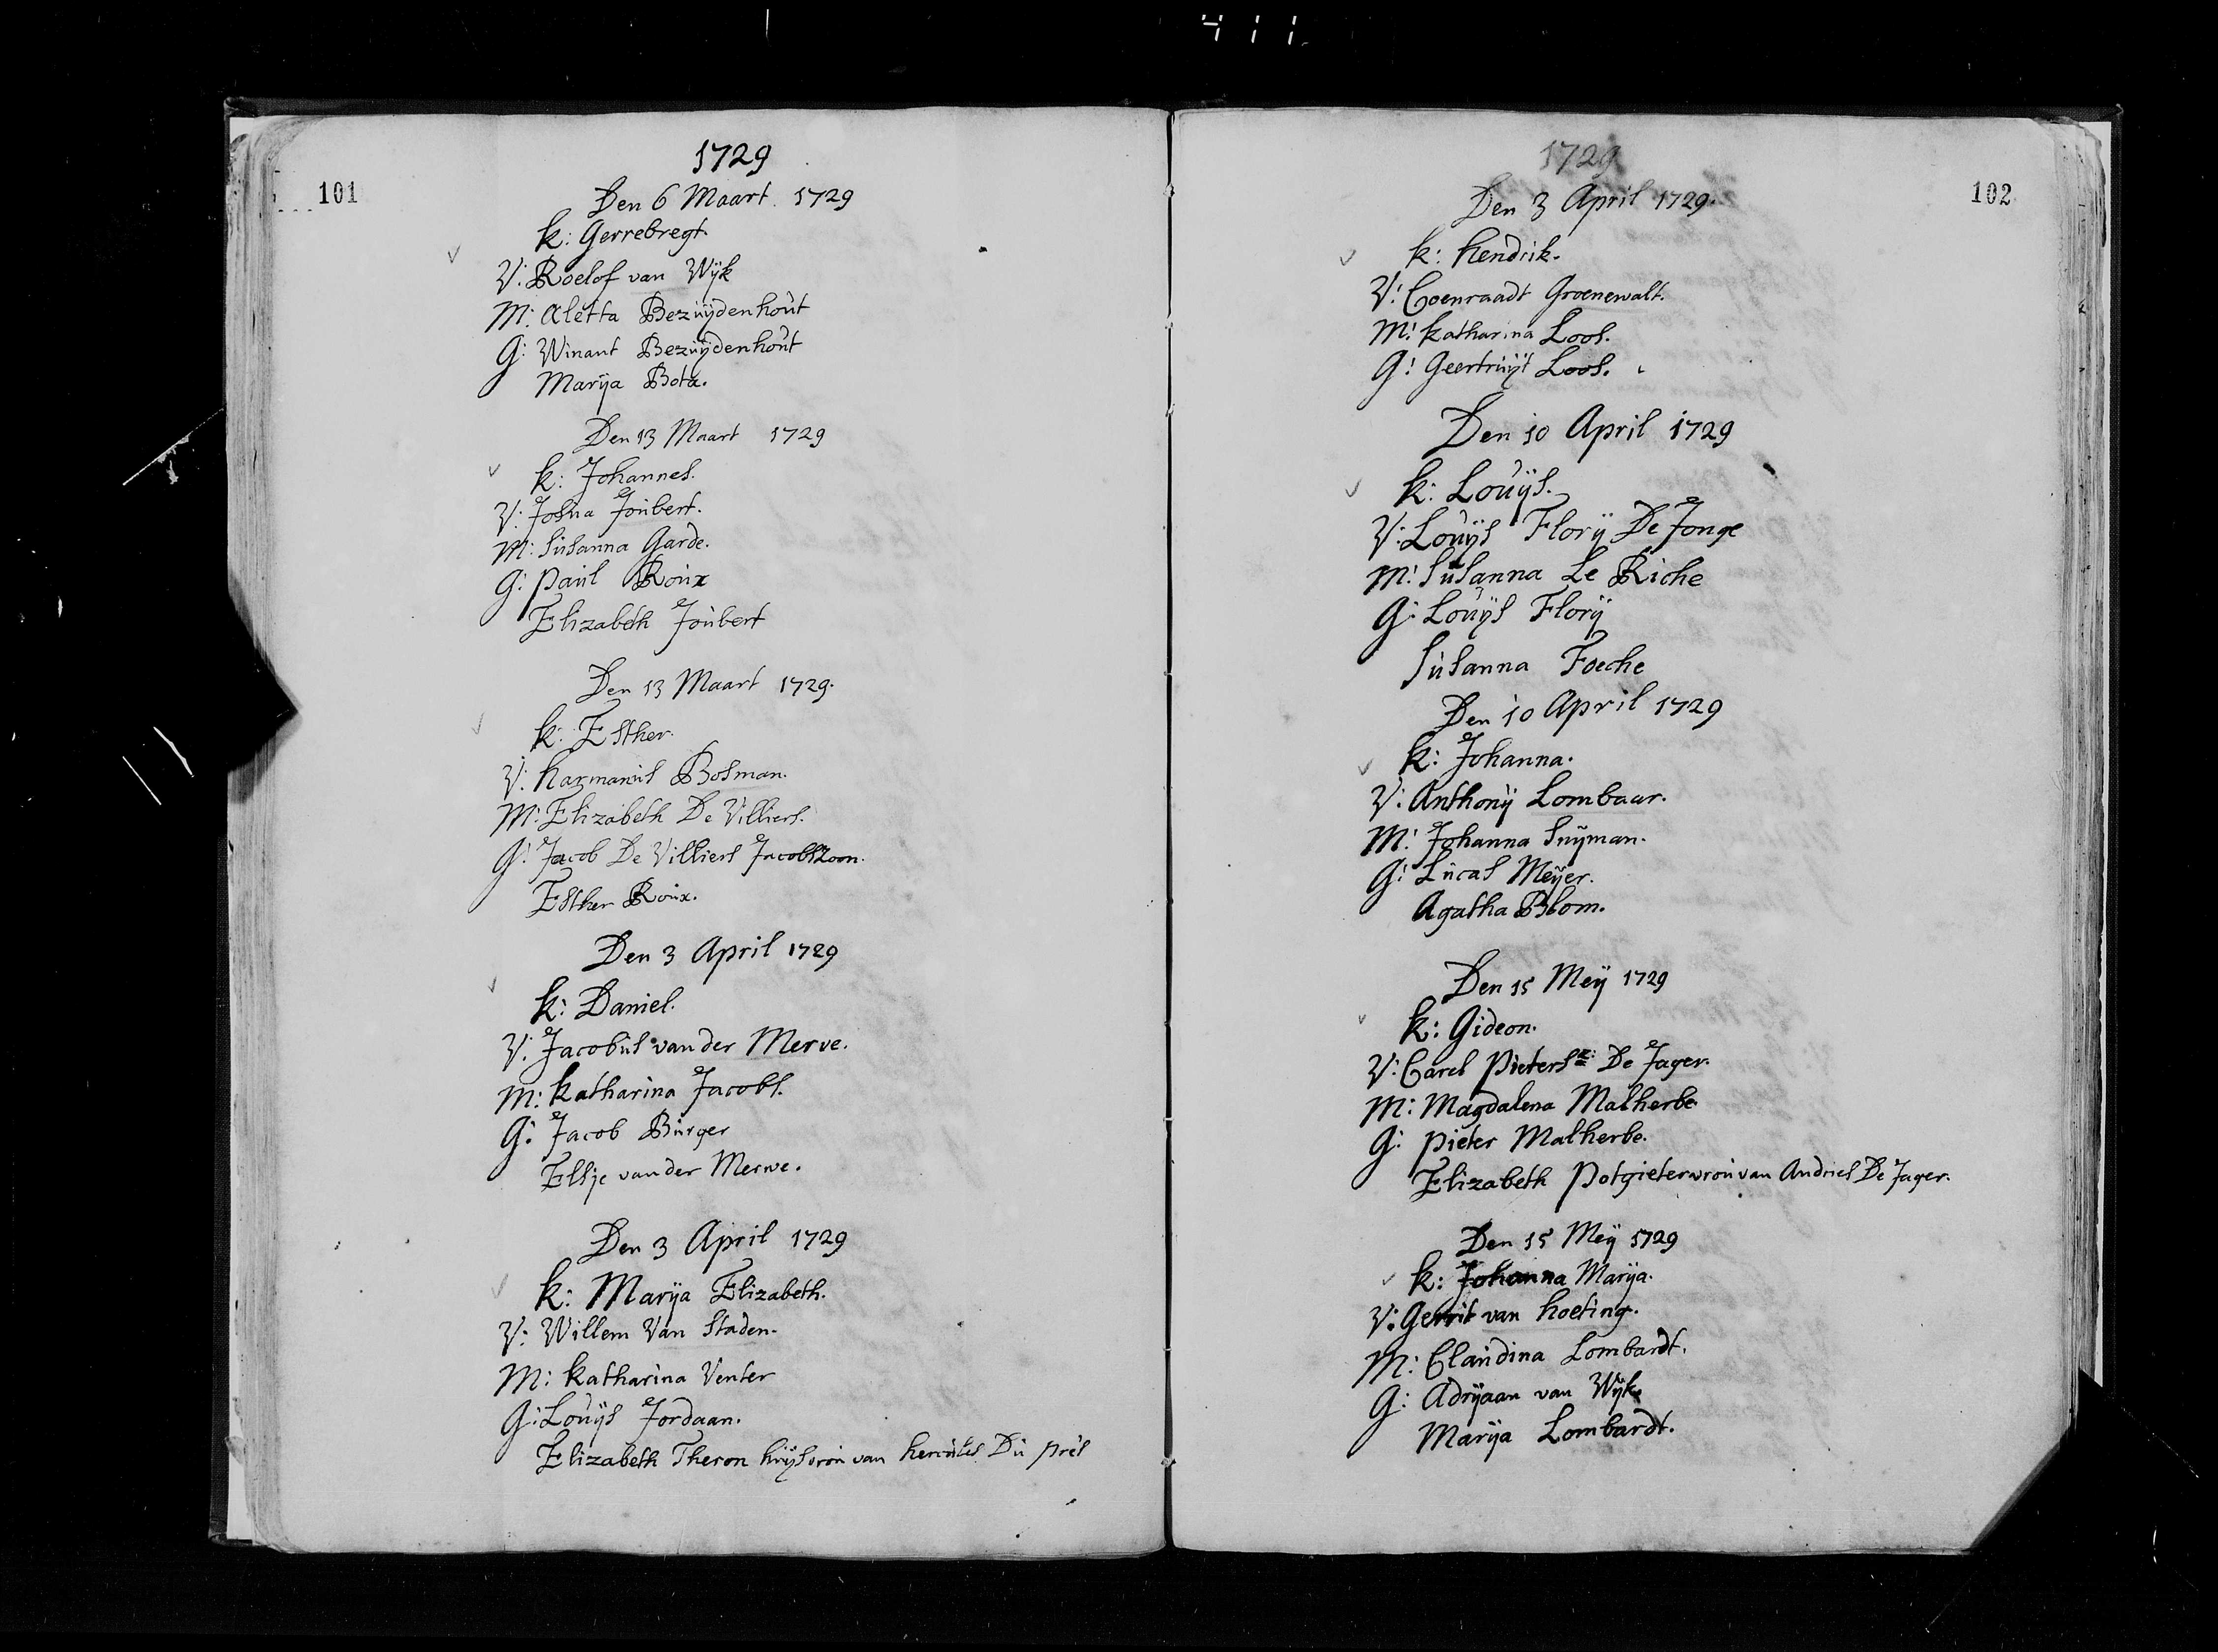 1729
101
Den 6 Maart 1729
k: Gerrebregt.
V: Roelof van Wÿk
M: Aletta Bezuÿdenhout
G: Winant Bezuÿdenhout
Marÿa Bota.
Den 13 Maart 1729
k: Johannes.
V: Josua Joubert.
M: Susanna Garde.
G: Paul Roux
Elizabeth Joubert
Den 13 Maart 1729.
k: Esther.
V: Harmanus Bosman.
M: Elizabeth De Villiers.
G: Jacob De Villiers Jacobszoon.
Esther Roux.
Den 3 April 1729
k: Daniel.
V: Jacobus van der Merve.
M: Katharina Jacobs.
G: Jacob Burger
Elsje van der Merwe.
Den 3 April 1729
k: Marÿa Elizabeth.
V: Willem Van Staden.
M: Katharina Venter
G: Louÿs Jordaan.
Elizabeth Theron huÿsvrou van Hercules Du Prés
1729
102
Den 3 April 1729.
k: Hendrik.
V: Coenraadt Groenewalt.
M: Katharina Loos.
G: Geertruÿt Loos.
Den 10 April 1729
k: Louÿs.
V: Louÿs Florÿ De Jonge
M: Susanna Le Riche
G: Louÿs Florÿ
Susanna Foeche
Den 10 April 1729
k: Johanna.
V: Anthonÿ Lombaar.
M: Johanna Snÿman.
G: Lucas Meÿer.
Agatha Blom.
Den 15 Meÿ 1729
k: Gideon.
V: Carel Pietersz: De Jager.
M: Magdalena Malherbe
G: Pieter Malherbe.
Elizabeth Potgieter vrou van Andries De Jager.
Den 15 Meÿ 1729
k: Johanna Marÿa.
V: Gerrit van Hoeting.
M: Claudina Lombardt.
G: Adrÿaan van Wÿk
Marÿa Lombardt.